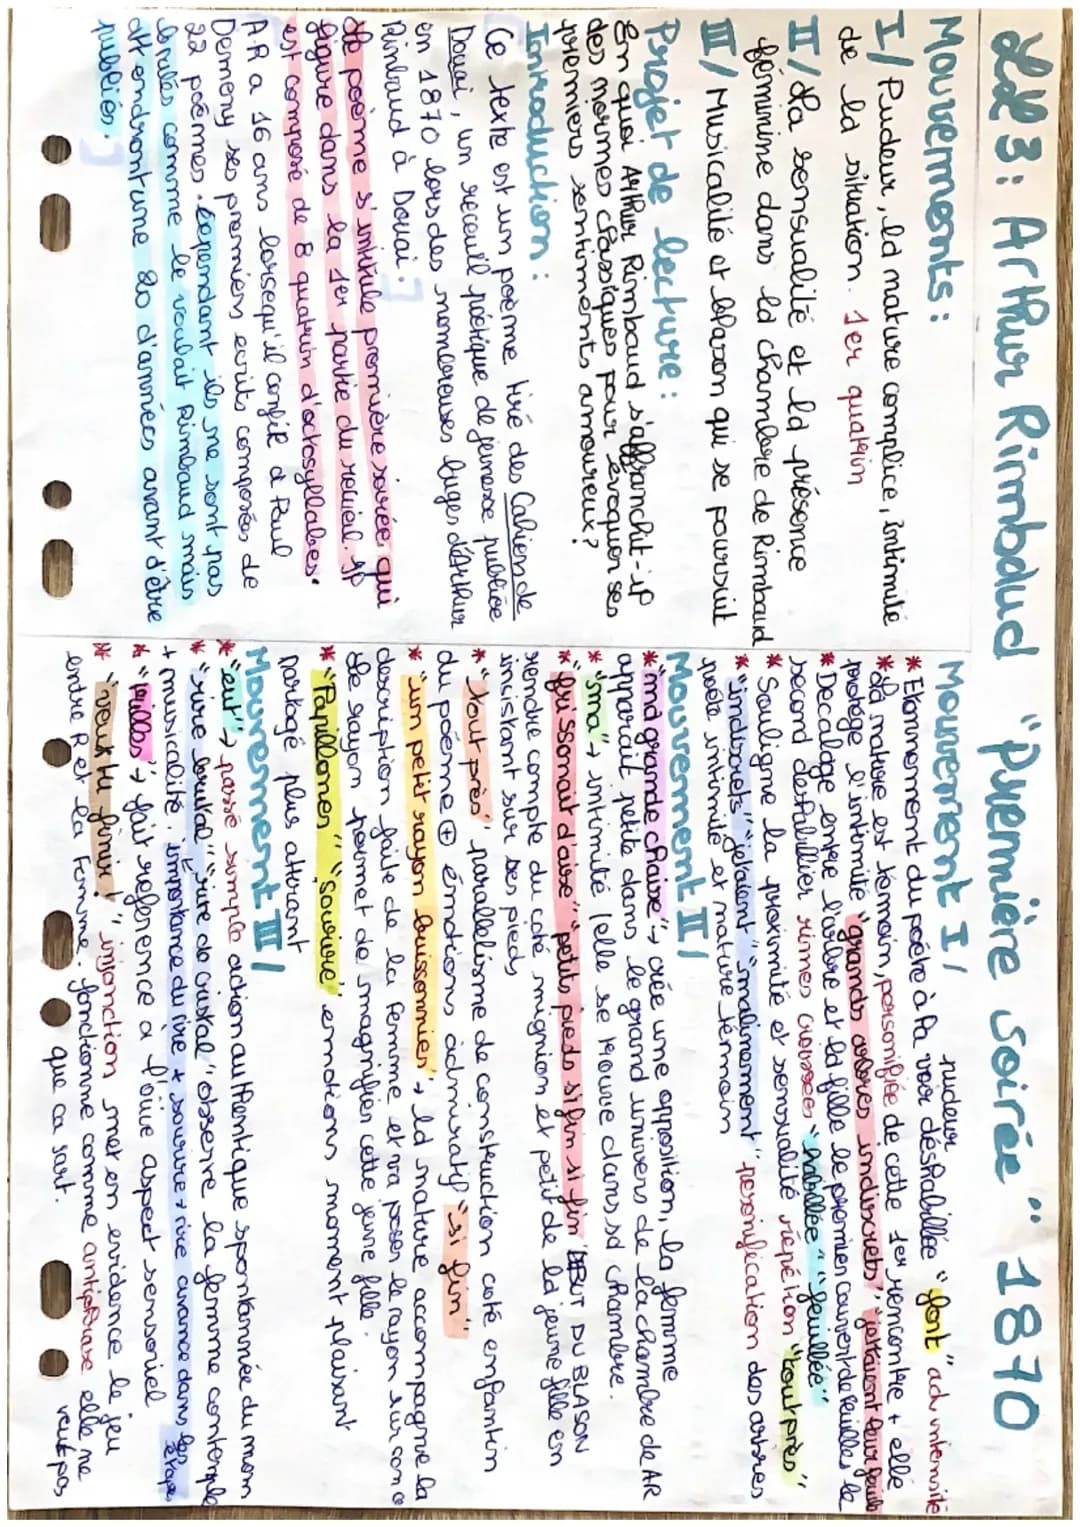 LL 3: Arthur Rimbaud "Première soirée" 1870
Mouvements :
I/ Pudeur, la nature complice, intimité
de la situation. 1er quatrin
II/ La sensualité et la présence
féminine dans la chambre de Rimbaud
III/ Musicalité et blason qui se poursuit
Projet de lecture :
En quoi Arthur Rimbaud s'affranchit-il
des normes classiques pour évoquer ses
premiers sentiments amoureux?
Introduction :
Ce texte est un poème tiré des Cahiers de
Douai, un receuil poétique de jeunesse publiée
en 1870 lors des nombreuses fuges d'Arthur
Rimbaud à Douai.
Le poème s'intitule première soirée, qui
figure dans la 1er partie du recueil. Il
est composé de 8 quatrin d'octosyllabes.
AR a 16 ans lorsequ'il confit à Paul
Demeny ses premiers ecrits composées de
22 poèmes. Cependant ils ne sont pas
brulés comme le voulait Rimbaud mais
attendront une 20 d'années avant d'être
publiés.
Mouvement I/
pudeur
* Etonnement du poète à la voir déshabillée "font" adv intensité
* La nature est temoin, personifiée de cette 1er rencontre + elle
protège l'intimité "grands arbres indiscrets", "jettaient leur feuillée"
* Decalage entre l'arbre et la fille le premier couvert de feuilles le
second deshabillier rimes croisées "habillée" "feuillée"
* Souligne la proximité et sensualité répétition "tout près"
* "indiscrets" "jetaient" "malinement" personification des arbres
revèle intimité et nature témoin
Mouvement II/
* "ma grande chaise" → crée une opposition, la femme
apparait petite dans le grand univers de la chambre de AR
* "ma" → intimité (elle se trouve dans sa chambre.
* "frissonait d'aise" "petits pieds si fin si fin" DEBUT DU BLASON
rendre compte du coté mignion et petit de la jeune fille en
insistant sur ses pieds
* "tout près" parallelisme de construction coté enfantin
du poème ⊕ émotions admiratif "si fin"
* "un petit rayon buissonnier" → la nature accompagne la
description faite de la femme et va poser le rayon sur
le rayon permet de magnifier cette jeune fille.
* "Papillonner" "sourire" emotions moment plaisant
partagé plus attirant
Mouvement III/
* "eut" → passé simple action authentique spontannée du mom
* "rire brutal" "rire de cristal" observe la femme contemple
+ musicalité. importance du rire + sourire + rire avance dans les étapes
* "trilles" → fait reference à l'ouïe aspect sensoriel
* "veux tu finir!" injonction met en evidence le jeu
entre R et la Femme. fonctionne comme antiphrase elle ne veut pas
que ca sart.